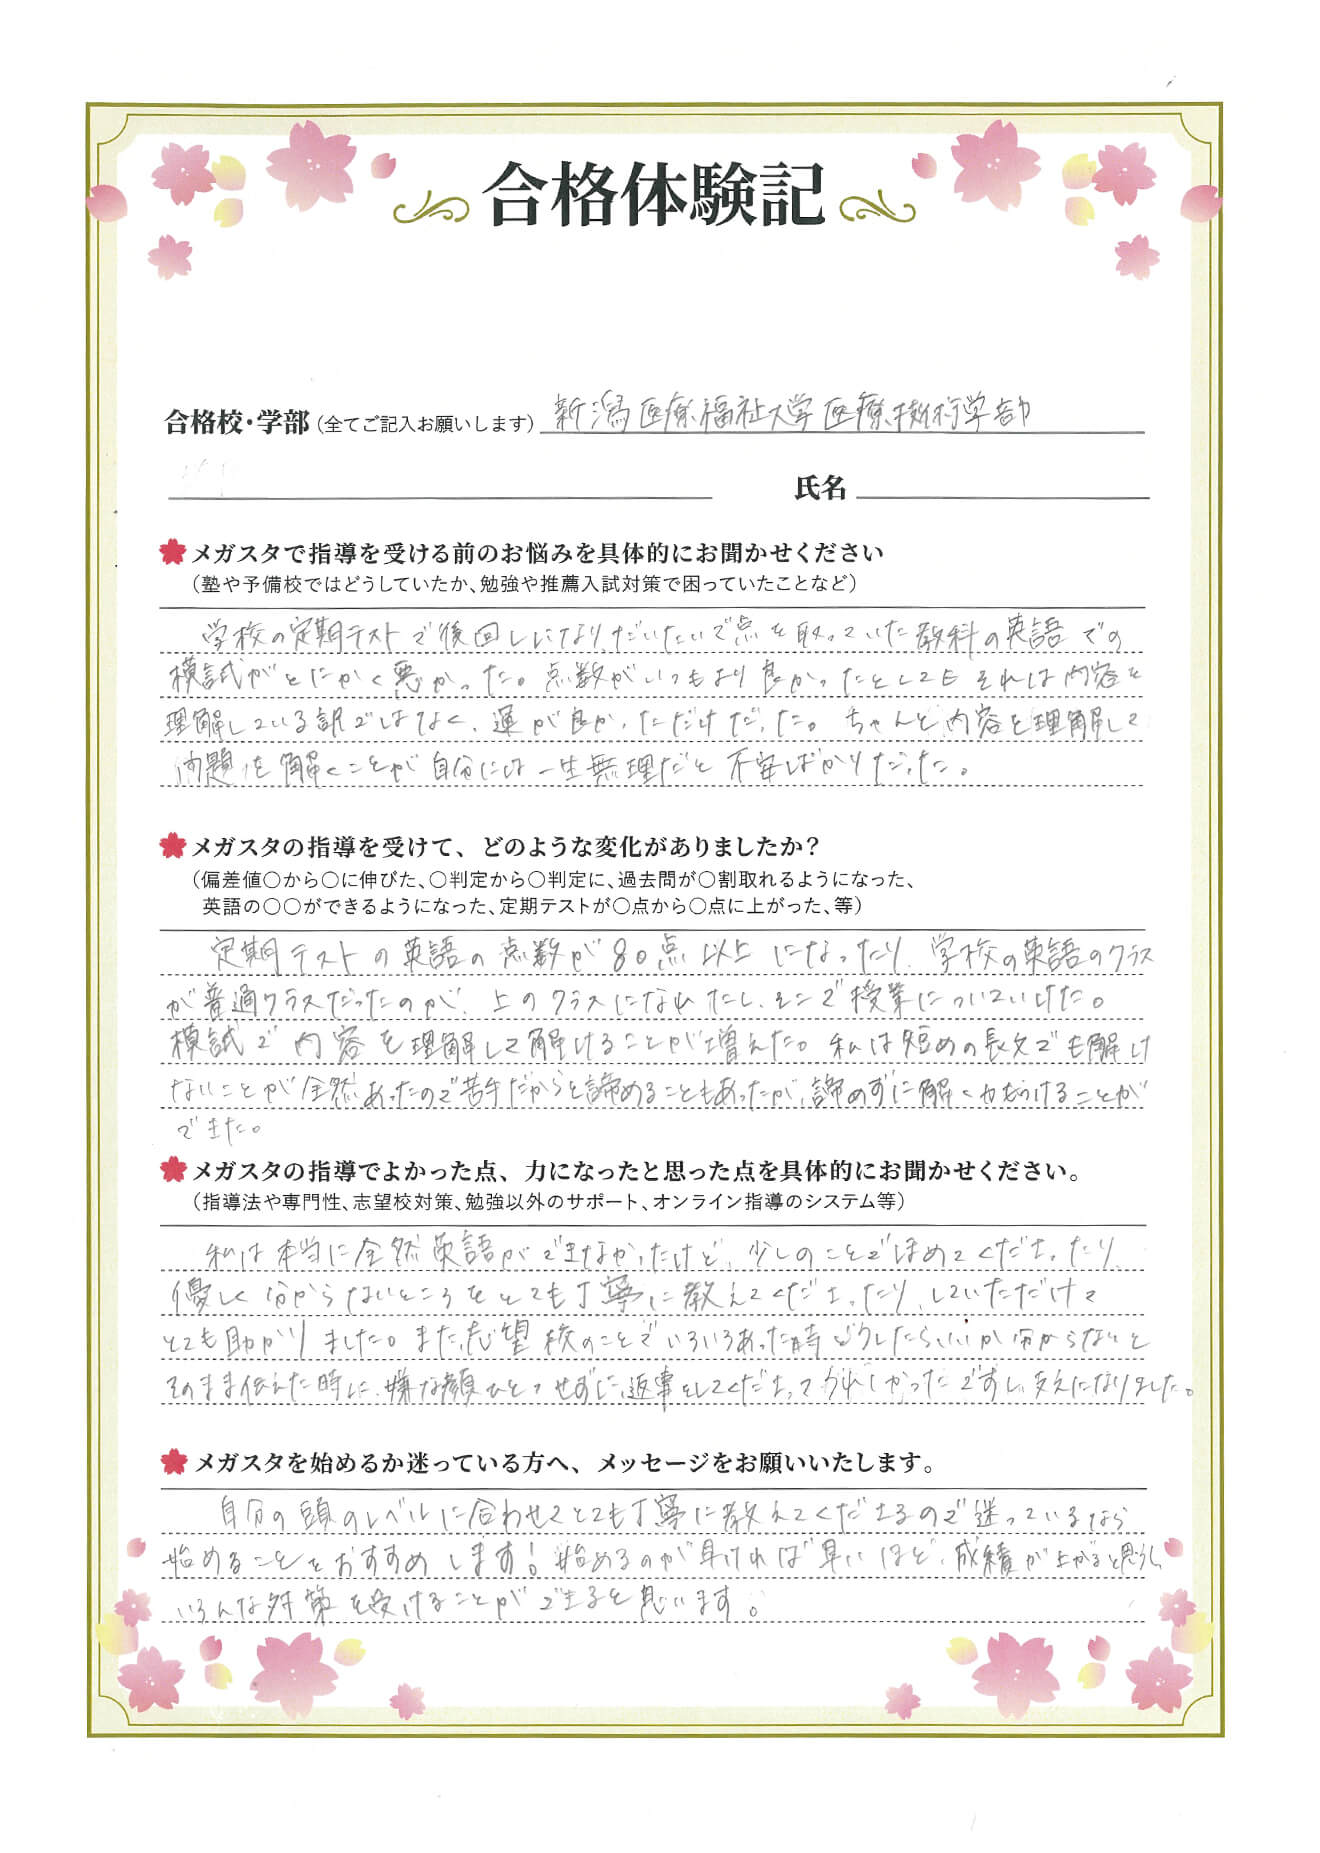 合格体験記
合格校・学部(全てご記入お願いします) 新潟医療福祉大学医療技術学部
氏名
メガスタで指導を受ける前のお悩みを具体的にお聞かせください
(塾や予備校ではどうしていたか、勉強や推薦入試対策で困っていたことなど)
学校の定期テストで後回しになり、だいたいで点を取っていた教科の英語での
模試がとにかく悪かった。点数がいつもより良かったとしても それは内容を
理解している訳ではなく、運が良かっただけだった。ちゃんと内容を理解して
問題を解くことが自分には一生無理だと不安ばかりだった。
メガスタの指導を受けて、どのような変化がありましたか?
(偏差値○から○に伸びた、○判定から○判定に、過去問が○割取れるようになった、
英語の○○ができるようになった、定期テストが○点から○点に上がった、等)
定期テストの英語の点数が80点以上になったり、学校の英語のクラス
が普通クラスだったのが、上のクラスになれたし、そこで授業についていけた。
模試で内容を理解して解けることが増えた。私は短めの長文でも解け
ないことが全然あったので苦手だからと諦めることもあったが、諦めずに解く力もつけることが
できた。
メガスタの指導でよかった点、力になったと思った点を具体的にお聞かせください。
(指導法や専門性、志望校対策、勉強以外のサポート、オンライン指導のシステム等)
私は本当に全然英語ができなかったけど、少しのことでほめてくださったり、
優しく分からないところをとても丁寧に教えてくださったり、していただけて
とても助かりました。また、志望校のことでいろいろあった時どうしたらいいか分からないと
そのまま伝えた時に、嫌な顔ひとつせずに、返事をしてくださってうれしかったですし、支えになりました。
メガスタを始めるか迷っている方へ、メッセージをお願いいたします。
自分の頭のレベルに合わせてとても丁寧に教えてくださるので迷っているなら
始めることをおすすめします!始めるのが早ければ早いほど、成績が上がると思うし、
いろんな対策を受けることができると思います。